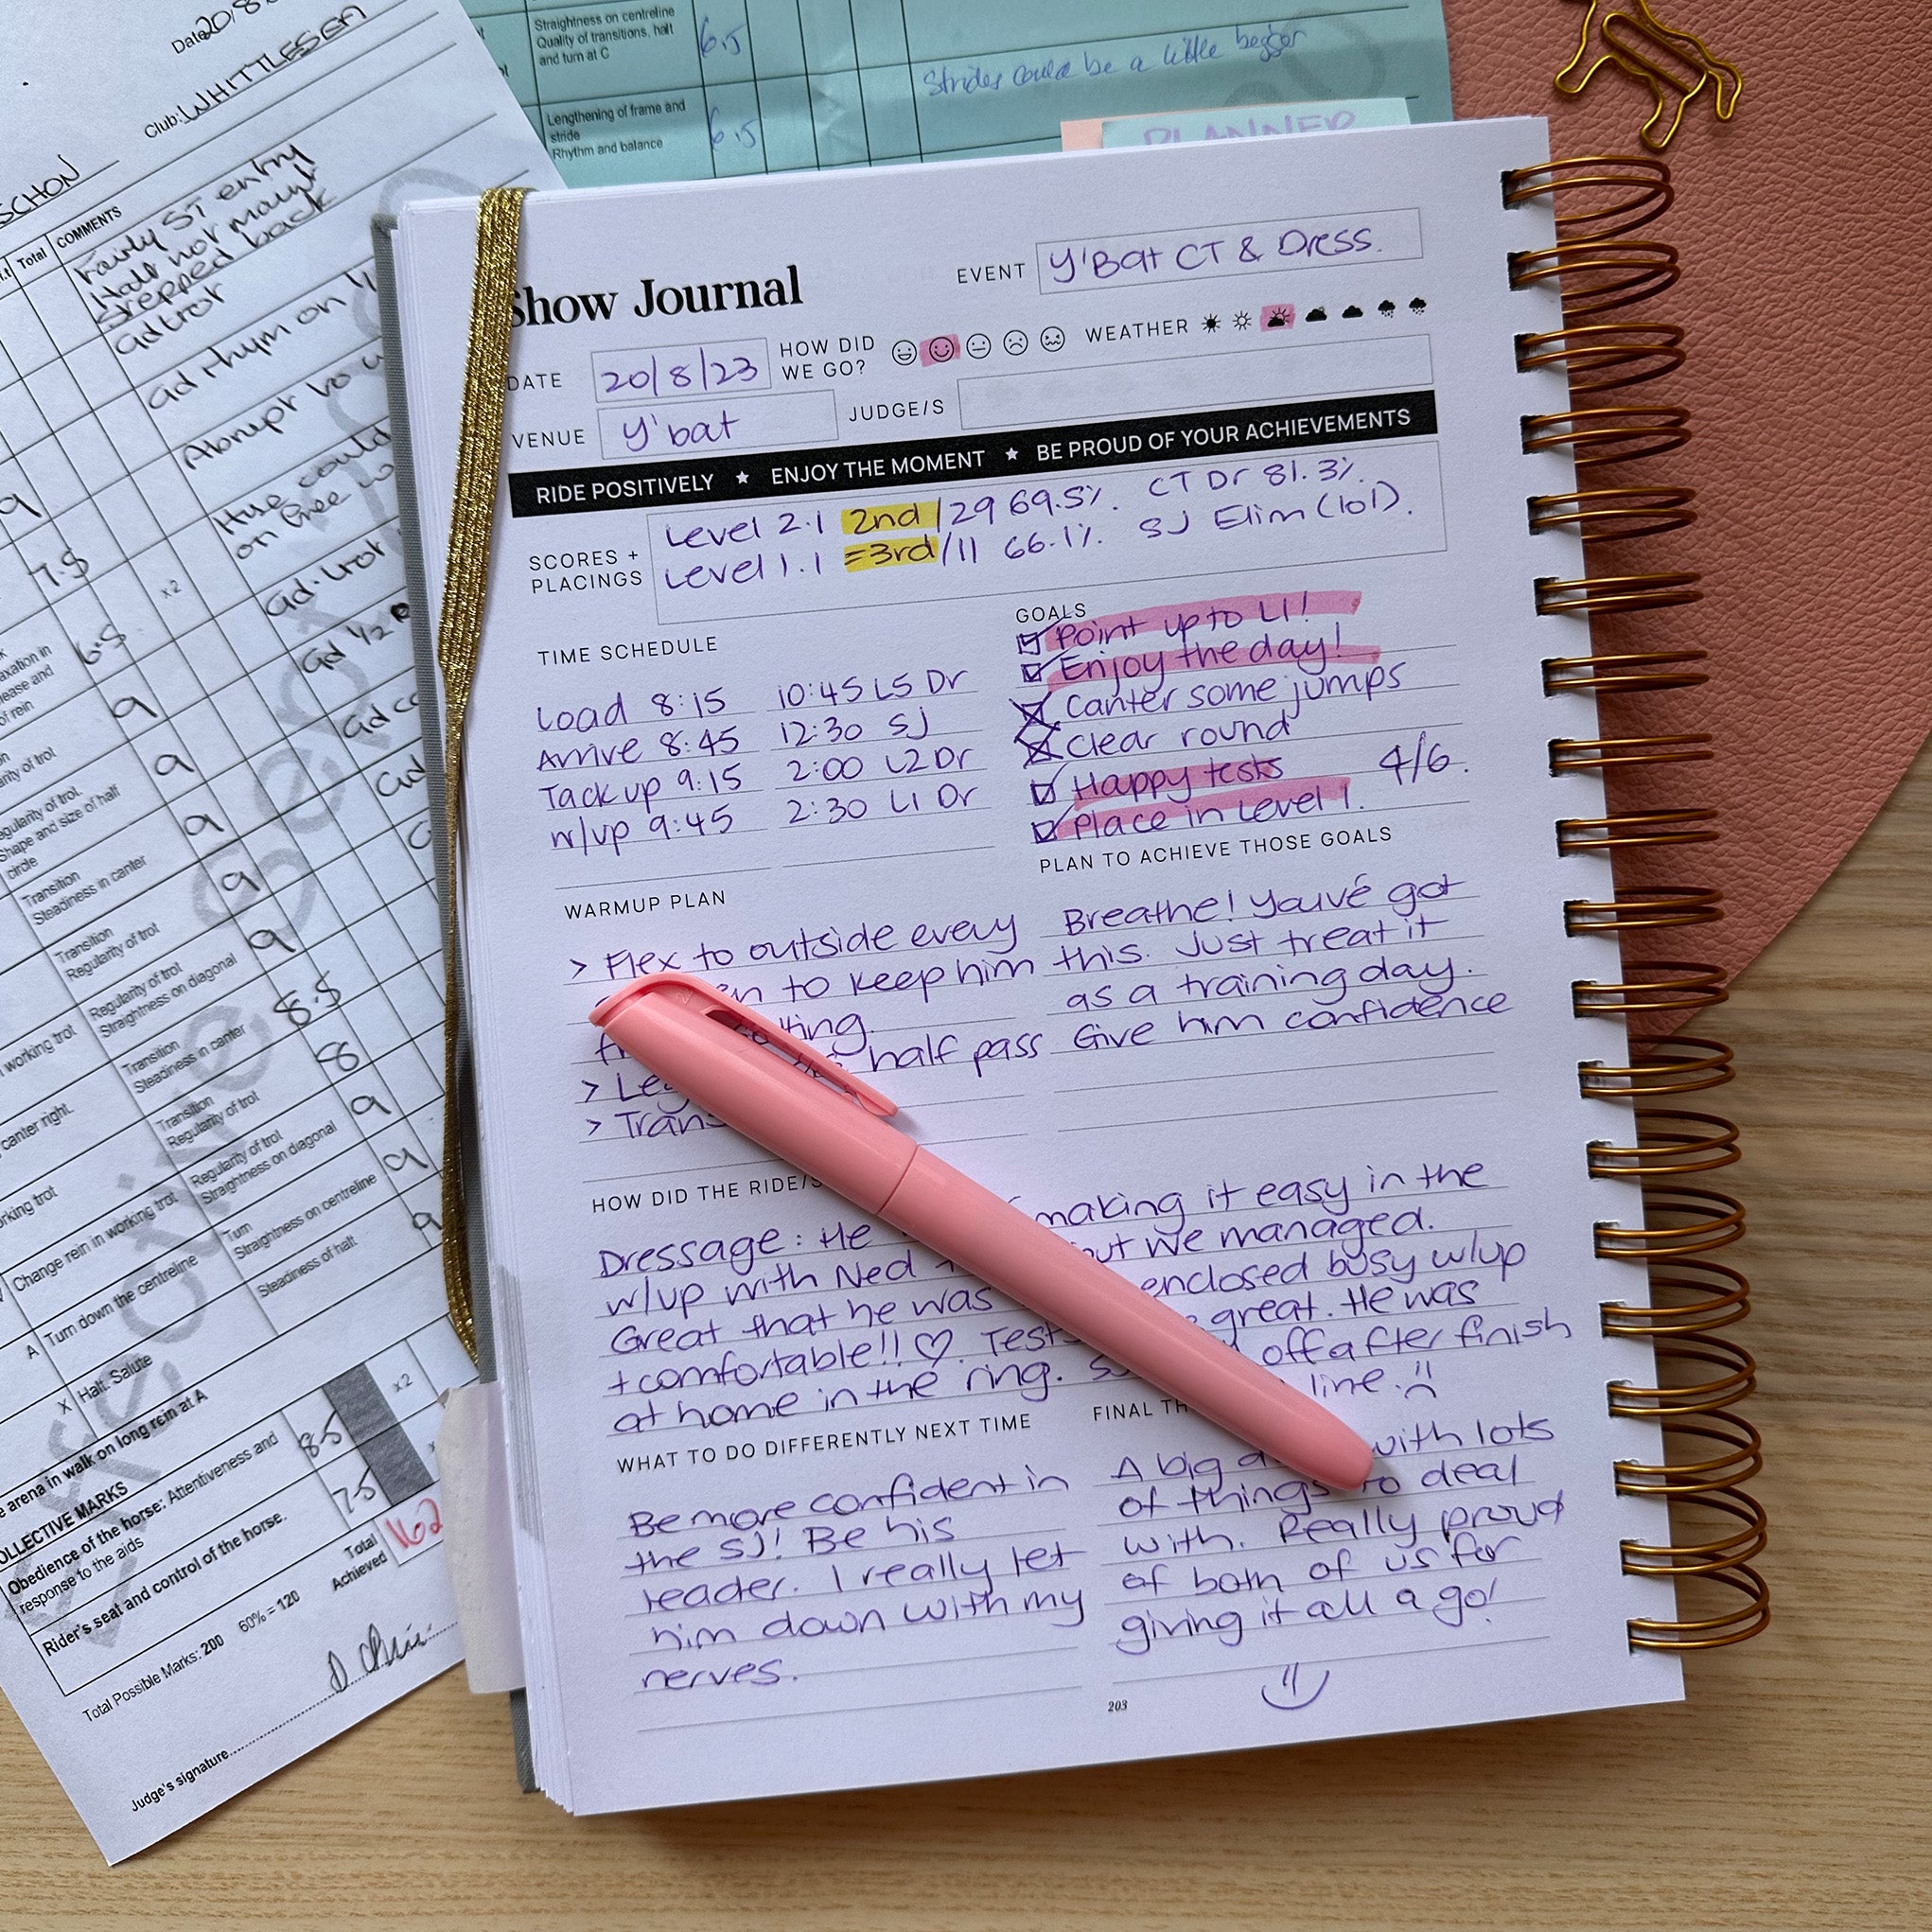 Date 20/8
Club: WHITTLESEA
SCHON
Total
COMMENTS
Fairly ST entry
Halt not maint
stepped back
Gd trot
Gd rhym on
Abrupt to
9
Hose could
on
7.5
x2
Gd. trot
6.5
Gd 1/2
9
9
9
9
9
8.5
8
9
9
9
arity of trot
Regularity of trot.
Shape and size of half
circle
Transition
Steadiness in canter
Transition
Regularity of trot
Regularity of trot
Straightness on diagonal
Transition
Steadiness in canter
Transition
Regularity of trot
Regularity of trot
Straightness on diagonal
Turn
Straightness on centreline
Steadiness of halt
working trot
canter right.
Change rein in working trot
A Turn down the centreline
X Halt. Salute
arena in walk on long rein at A
COLLECTIVE MARKS
Obedience of the horse: Attentiveness and
response to the aids
8.5
x2
Rider's seat and control of the horse.
7.5
Total Possible Marks: 200 60% = 120
Total
Achieved
162
Judge's signature
Straightness on centreline
Quality of transitions, halt
and turn at C
6.5
Lengthening of frame and
stride
Rhythm and balance
6.5
Strides could be a little bigger
PLANNER
Show Journal
EVENT Y'Bat CT & Dress.
DATE 20/8/23
HOW DID
WE GO?
WEATHER
VENUE Y'bat
JUDGE/S
RIDE POSITIVELY ★ ENJOY THE MOMENT ★ BE PROUD OF YOUR ACHIEVEMENTS
SCORES +
PLACINGS
Level 2.1 2nd/29 69.5%. CT Dr 81.3%.
Level 1.1 =3rd/11 66.1%. SJ Elim (lol).
TIME SCHEDULE
Load 8:15 10:45 L5 Dr
Arrive 8:45 12:30 SJ
Tack up 9:15 2:00 L2 Dr
w/up 9:45 2:30 L1 Dr
GOALS
Point up to L1!
Enjoy the day!
Canter some jumps
Clear round
Happy tests 4/6.
Place in Level 1.
WARMUP PLAN
> Flex to outside every
to keep him
> half pass
> Trans
PLAN TO ACHIEVE THOSE GOALS
Breathe! You've got
this. Just treat it
as a training day.
Give him confidence
HOW DID THE RIDE/S
Dressage: He making it easy in the
w/up with Ned but we managed.
Great that he was enclosed busy w/up
+ comfortable!! ♡. Tests great. He was
at home in the ring. off after finish
line.
WHAT TO DO DIFFERENTLY NEXT TIME
Be more confident in
the SJ! Be his
leader. I really let
him down with my
nerves.
FINAL TH
A big with lots
of things to deal
with. Really proud
of both of us for
giving it all a go!
203